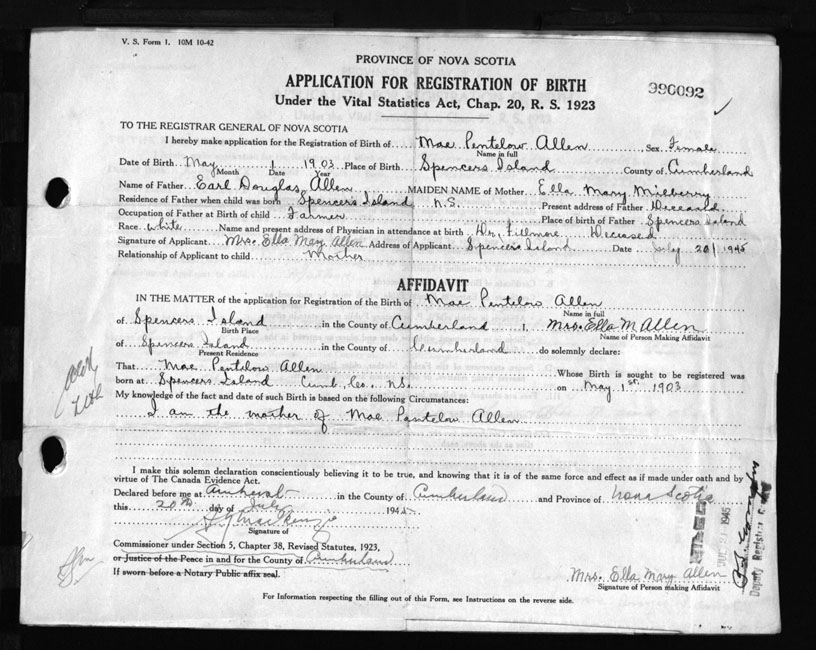 V. S. Form 1. 10M 10-42
PROVINCE OF NOVA SCOTIA
APPLICATION FOR REGISTRATION OF BIRTH
990092
Under the Vital Statistics Act, Chap. 20, R. S. 1923
TO THE REGISTRAR GENERAL OF NOVA SCOTIA
I hereby make application for the Registration of Birth of Mae Pentelow Allen Sex Female
Name in full
Date of Birth May 1 1903 Place of Birth Spencers Island County of Cumberland
Month Date Year
Name of Father Earl Douglas Allen MAIDEN NAME of Mother Ella Mary Milberry
Residence of Father when child was born Spencers Island N.S. Present address of Father Deceased
Occupation of Father at Birth of child Farmer Place of birth of Father Spencers Island
Race White Name and present address of Physician in attendance at birth Dr. Fillmore Deceased
Signature of Applicant Mrs. Ella Mary Allen Address of Applicant Spencers Island Date July 20/1945
Relationship of Applicant to child Mother
AFFIDAVIT
IN THE MATTER of the application for Registration of the Birth of Mae Pentelow Allen
Name in full
of Spencers Island in the County of Cumberland I, Mrs. Ella M Allen
Birth Place Name of Person Making Affidavit
of Spencers Island in the County of Cumberland do solemnly declare:
Present Residence
That Mae Pentelow Allen Whose Birth is sought to be registered was
born at Spencers Island Cumb. Co. N.S. on May 1st. 1903
My knowledge of the fact and date of such Birth is based on the following Circumstances:
I am the mother of Mae Pentelow Allen
I make this solemn declaration conscientiously believing it to be true, and knowing that it is of the same force and effect as if made under oath and by
virtue of The Canada Evidence Act.
Declared before me at Amherst in the County of Cumberland and Province of Nova Scotia
this 20th day of July 1945
Signature of
Commissioner under Section 5, Chapter 38, Revised Statutes, 1923,
or Justice of the Peace in and for the County of Cumberland
If sworn before a Notary Public affix seal.
Mrs. Ella Mary Allen
Signature of Person making Affidavit
Deputy Registrar
For Information respecting the filling out of this Form, see Instructions on the reverse side.